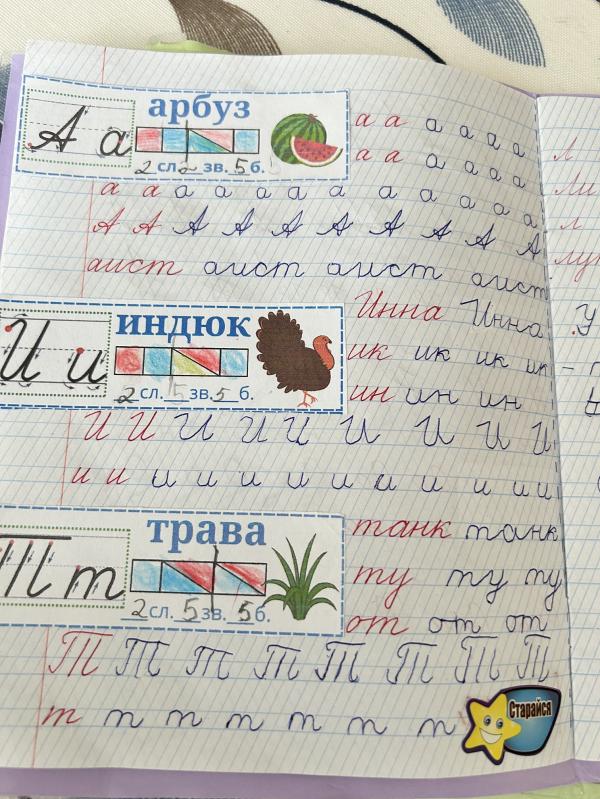 арбуз
А а
2 сл. 2 зв. 5 б.
а а а а а а
а а а а а а
а а а а а а а а а а
А А А А А А А А А
аист аист аист аист
индюк
И и
2 сл. 5 зв. 5 б.
Инна Инна
ик ик ик ик
ин ин ин
И И И И И И И И И
и и и и и и и и и и и
трава
Т т
2 сл. 5 зв. 5 б.
танк танк
ту ту ту
от от от
Т Т Т Т Т Т Т Т
т т т т т т т
Старайся